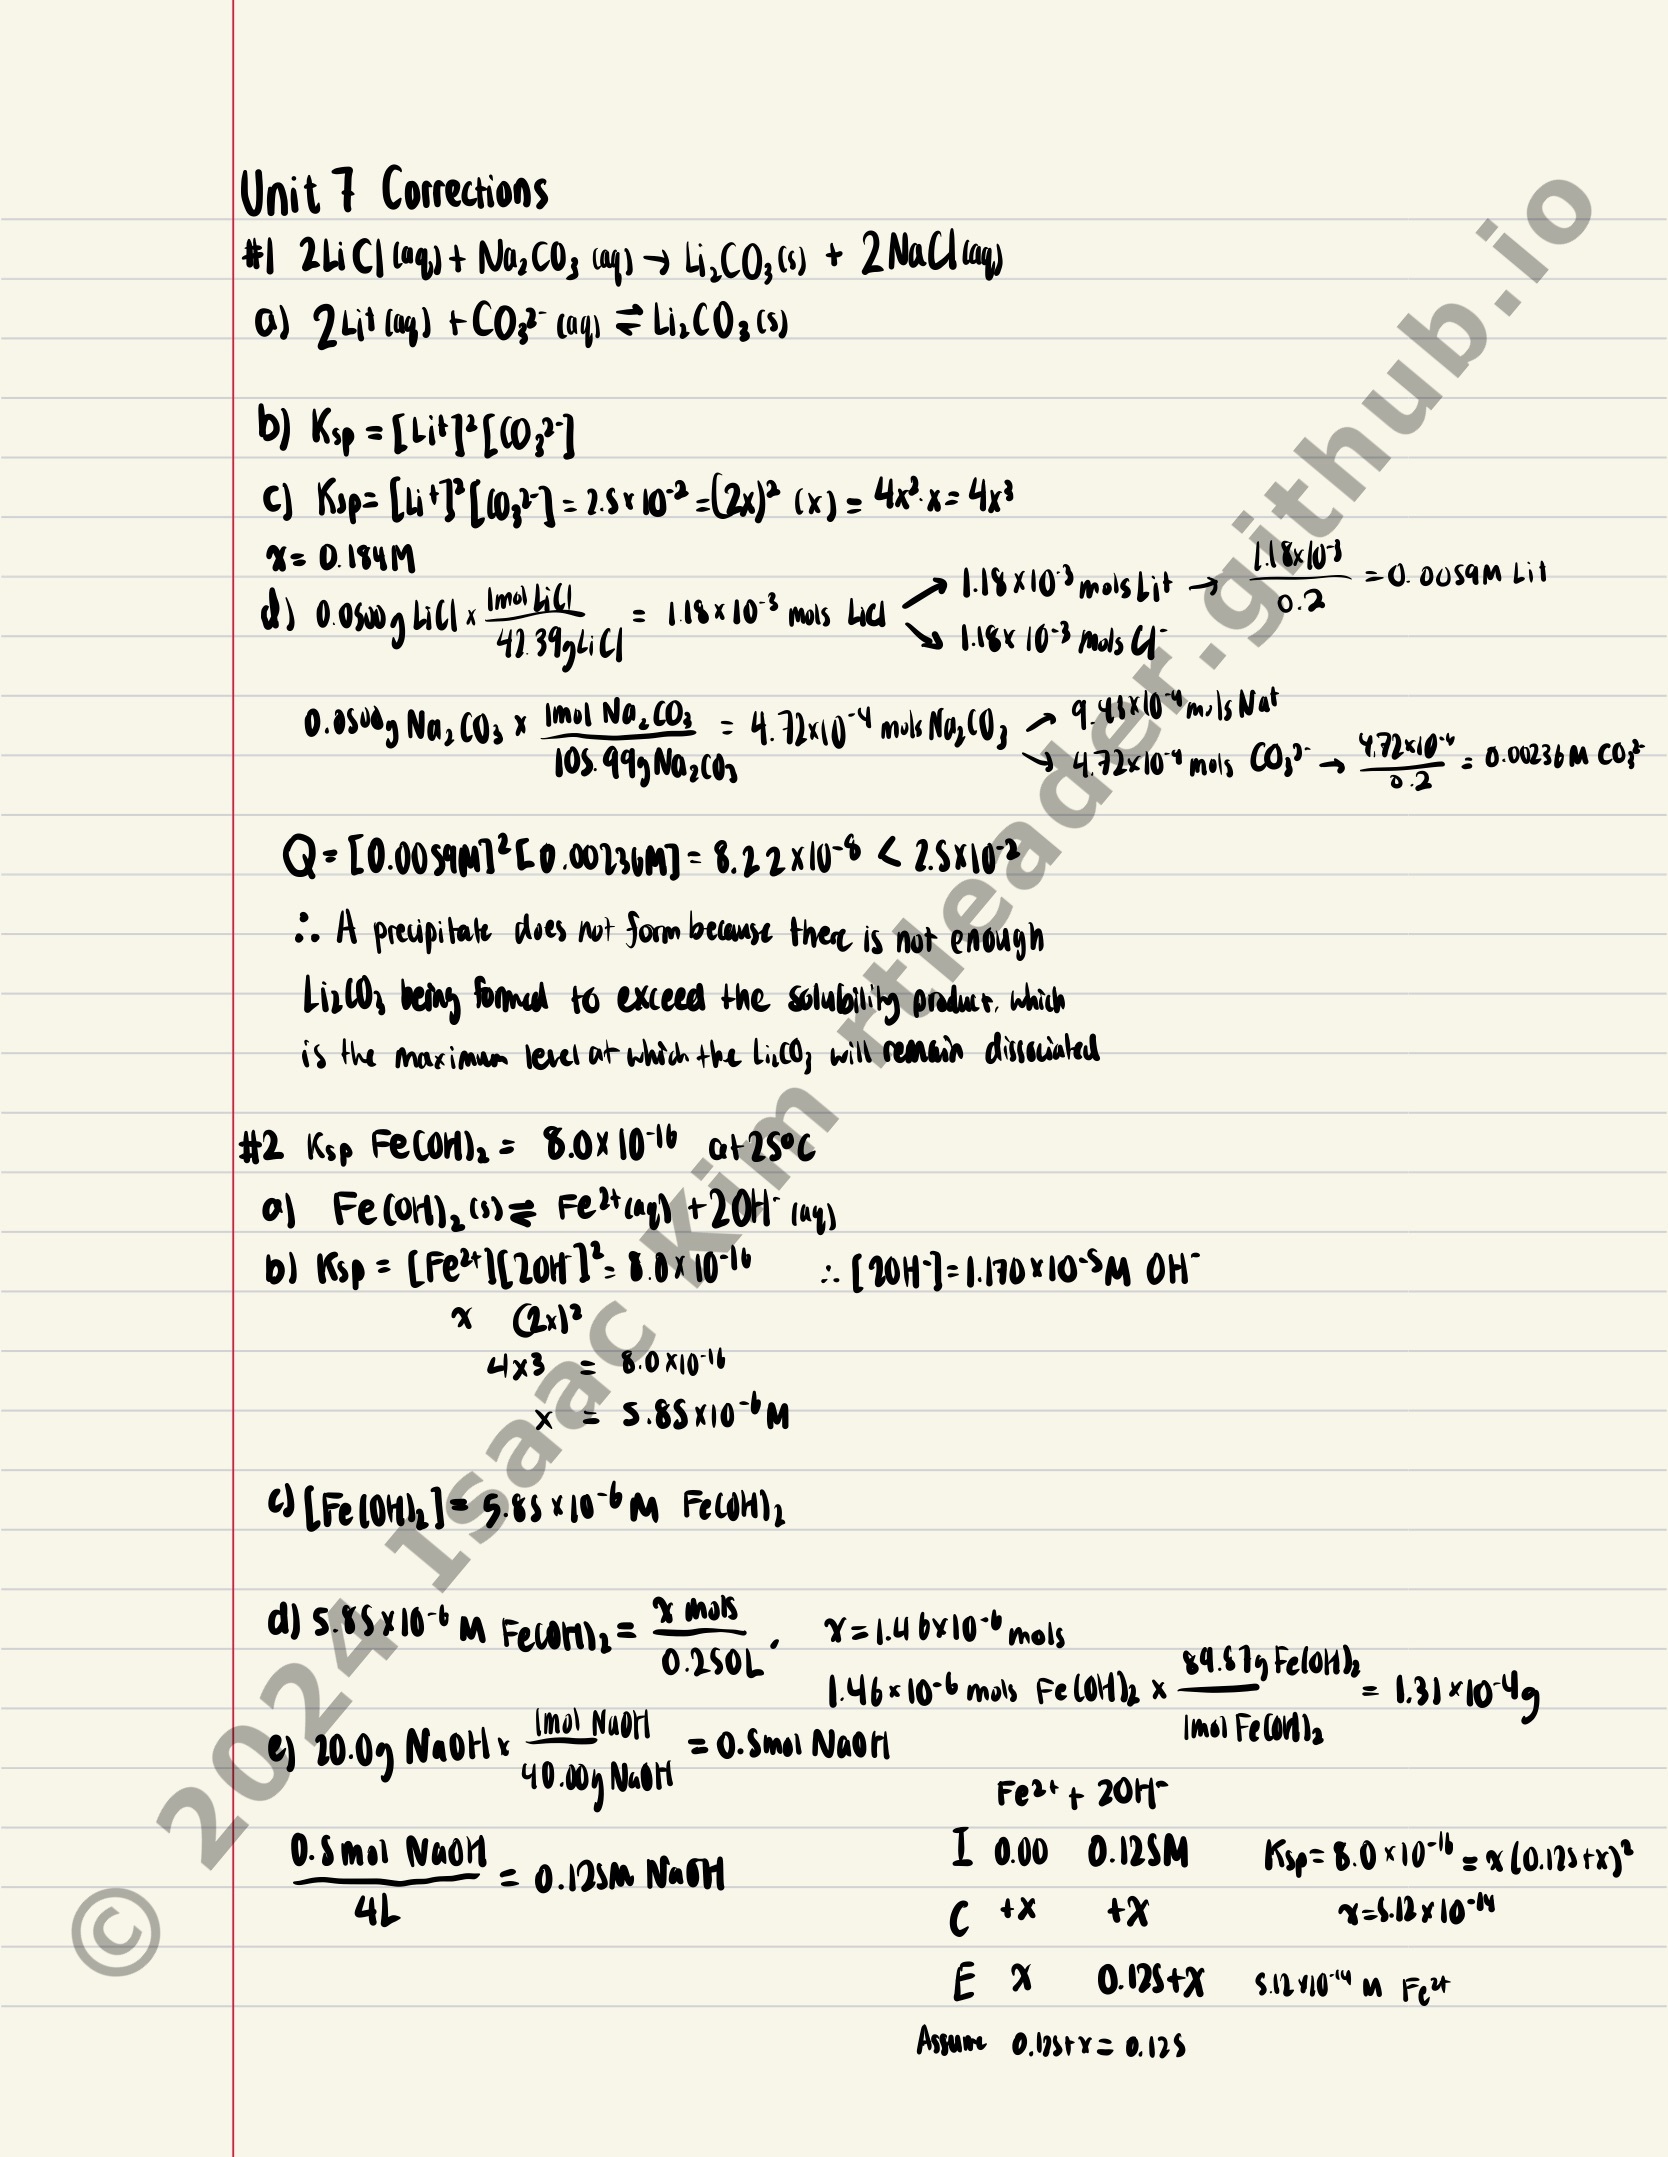 Unit 7 Corrections
#1 2LiCl (aq) + Na₂CO₃ (aq) → Li₂CO₃ (s) + 2NaCl (aq)
a) 2Li⁺ (aq) + CO₃²⁻ (aq) ⇌ Li₂CO₃ (s)
b) Ksp = [Li⁺]² [CO₃²⁻]
c) Ksp = [Li⁺]² [CO₃²⁻] = 2.5 × 10⁻² = (2x)² (x) = 4x²·x = 4x³
x = 0.184M
d) 0.0500g LiCl × 1mol LiCl / 42.39g LiCl = 1.18 × 10⁻³ mols LiCl ↗ 1.18 × 10⁻³ mols Li⁺ → 1.18×10⁻³ / 0.2 = 0.0059M Li⁺
↘ 1.18 × 10⁻³ mols Cl⁻
0.0500g Na₂CO₃ × 1mol Na₂CO₃ / 105.99g Na₂CO₃ = 4.72×10⁻⁴ mols Na₂CO₃ ↗ 9.43×10⁻⁴ mols Na⁺
↘ 4.72×10⁻⁴ mols CO₃²⁻ → 4.72×10⁻⁴ / 0.2 = 0.00236 M CO₃²⁻
Q = [0.0059M]² [0.00236M] = 8.22×10⁻⁸ < 2.5×10⁻²
∴ A precipitate does not form because there is not enough
Li₂CO₃ being formed to exceed the solubility product, which
is the maximum level at which the Li₂CO₃ will remain dissociated
#2 Ksp Fe(OH)₂ = 8.0×10⁻¹⁶ at 25°C
a) Fe(OH)₂ (s) ⇌ Fe²⁺ (aq) + 2OH⁻ (aq)
b) Ksp = [Fe²⁺][2OH⁻]² = 8.0×10⁻¹⁶ ∴ [2OH⁻] = 1.170×10⁻⁵M OH⁻
x (2x)²
4x3 = 8.0×10⁻¹⁶
x = 5.85×10⁻⁶M
c) [Fe(OH)₂] = 5.85×10⁻⁶ M Fe(OH)₂
d) 5.85×10⁻⁶ M Fe(OH)₂ = x mols / 0.250L, x = 1.46×10⁻⁶ mols
1.46×10⁻⁶ mols Fe(OH)₂ × 89.87g Fe(OH)₂ / 1mol Fe(OH)₂ = 1.31×10⁻⁴g
e) 20.0g NaOH × 1mol NaOH / 40.00g NaOH = 0.5mol NaOH
0.5mol NaOH / 4L = 0.125M NaOH
Fe²⁺ + 2OH⁻
I 0.00 0.125M Ksp = 8.0×10⁻¹⁶ = x(0.125+x)²
C +x +x x = 5.12×10⁻¹⁴
E x 0.125+x 5.12×10⁻¹⁴ M Fe²⁺
Assume 0.125+x = 0.125
© 2024 Isaac Kim rtleader.github.io